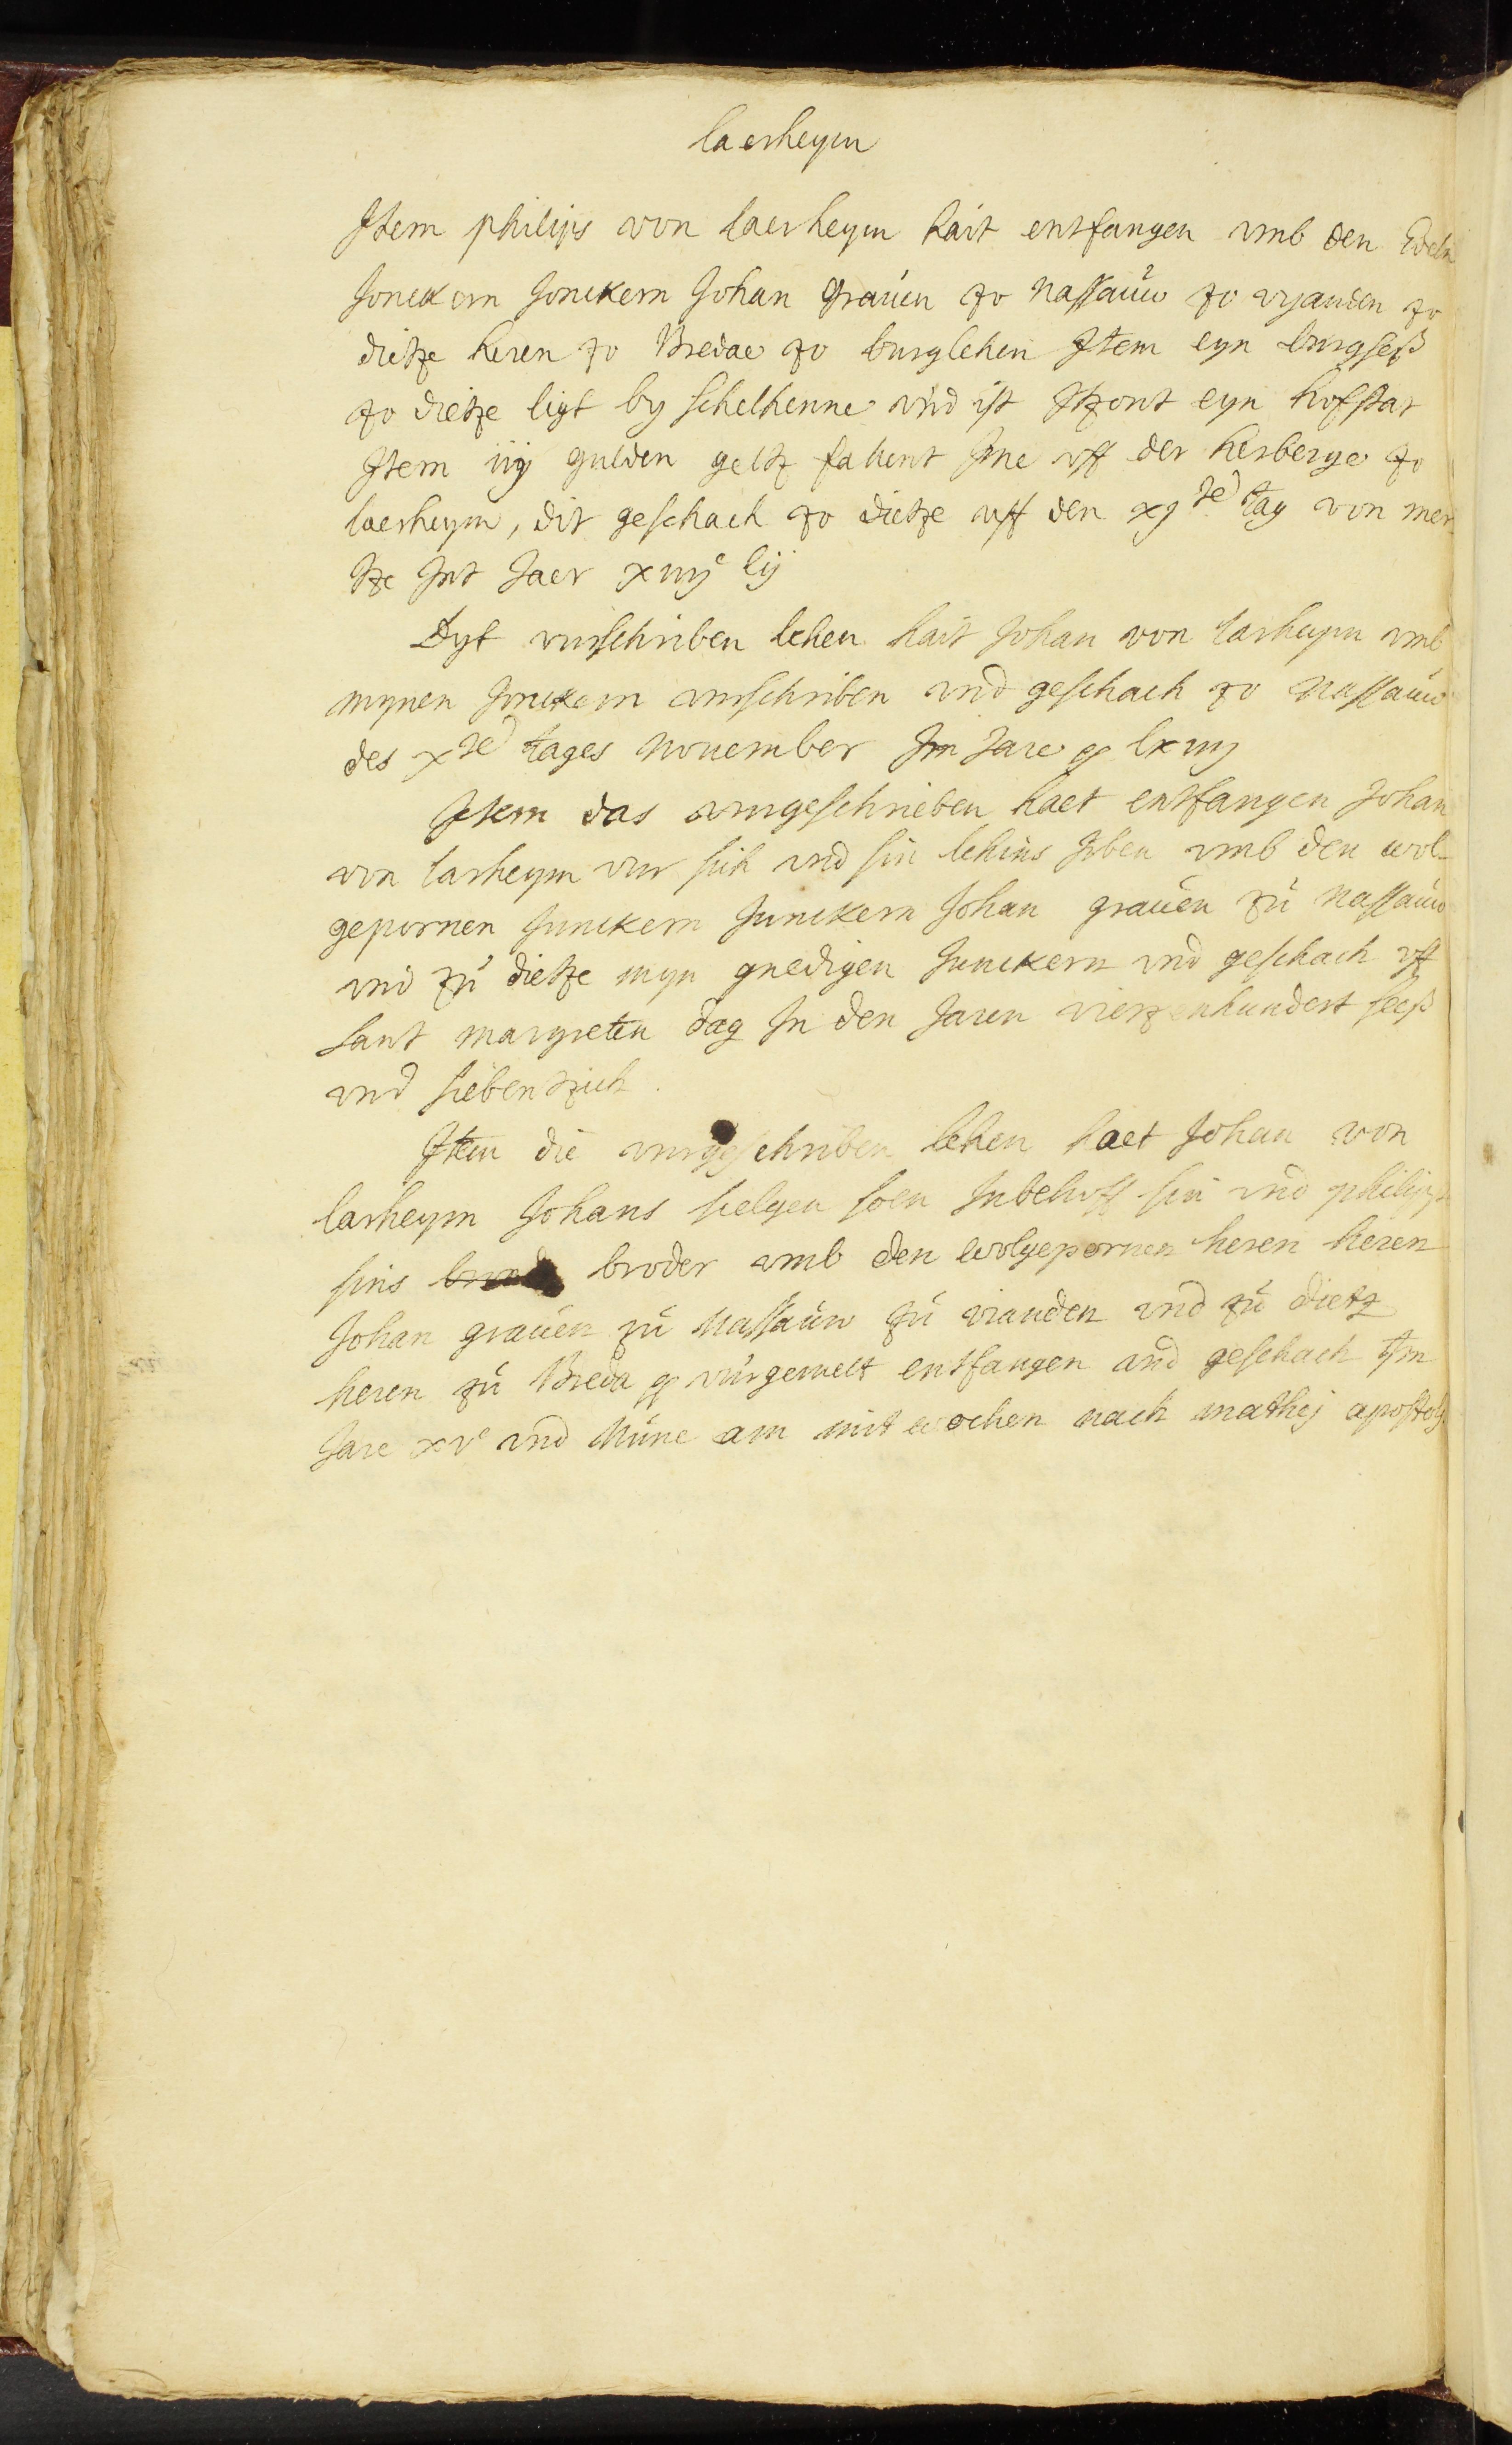 laerheym
Jtem philips von laerheym hait entfangen vmb den Edeln
Jonckern Jonckern Johan Grauen zo Nassauw zo vyanden zo
dietze heren zo Bredae zo burglehen Jtem eyn burgseß
zo dietze ligt by schelhenne vnd ist Jtzont eyn hofstat
Jtem iiij gulden geltz fallent Jme vff der herberge zo
laerheym, dit geschach zo dietze vff den xj ten tag von mer
tze Jnt Jaer xiiijc lij
Dyt vurschriben lehen hait Johan von larheym vmb
mynen Jonckern vurschriben vnd geschach zo Nassauw
des xten tages Nouember Jm Jare lxiiij
Jtem das vurgeschrieben haet entfangen Johan
von larheym vur sich vnd sin lehins Erben vmb den wol
gepornen Junckern Junckern Johan grauen zu Nassauw
vnd zu dietze myn gnedigen Junckern vnd geschach vff
sant margreten dag Jn den Jaren vierzenhundert seeß
vnd siebentzich.
Jtem die vurgeschriben lehen haet Johan von
larheym Johans sielgen soen Jnbehuff sin vnd philips
sins broder vmb den wolgepornen heren heren
Johan grauen zu Nassauw zu vianden vnd zu dietz
heren zu Breda vurgemelt entfangen vnd geschach Jm
Jare xvc vnd Nune am mitwochen nach mathej apostolj